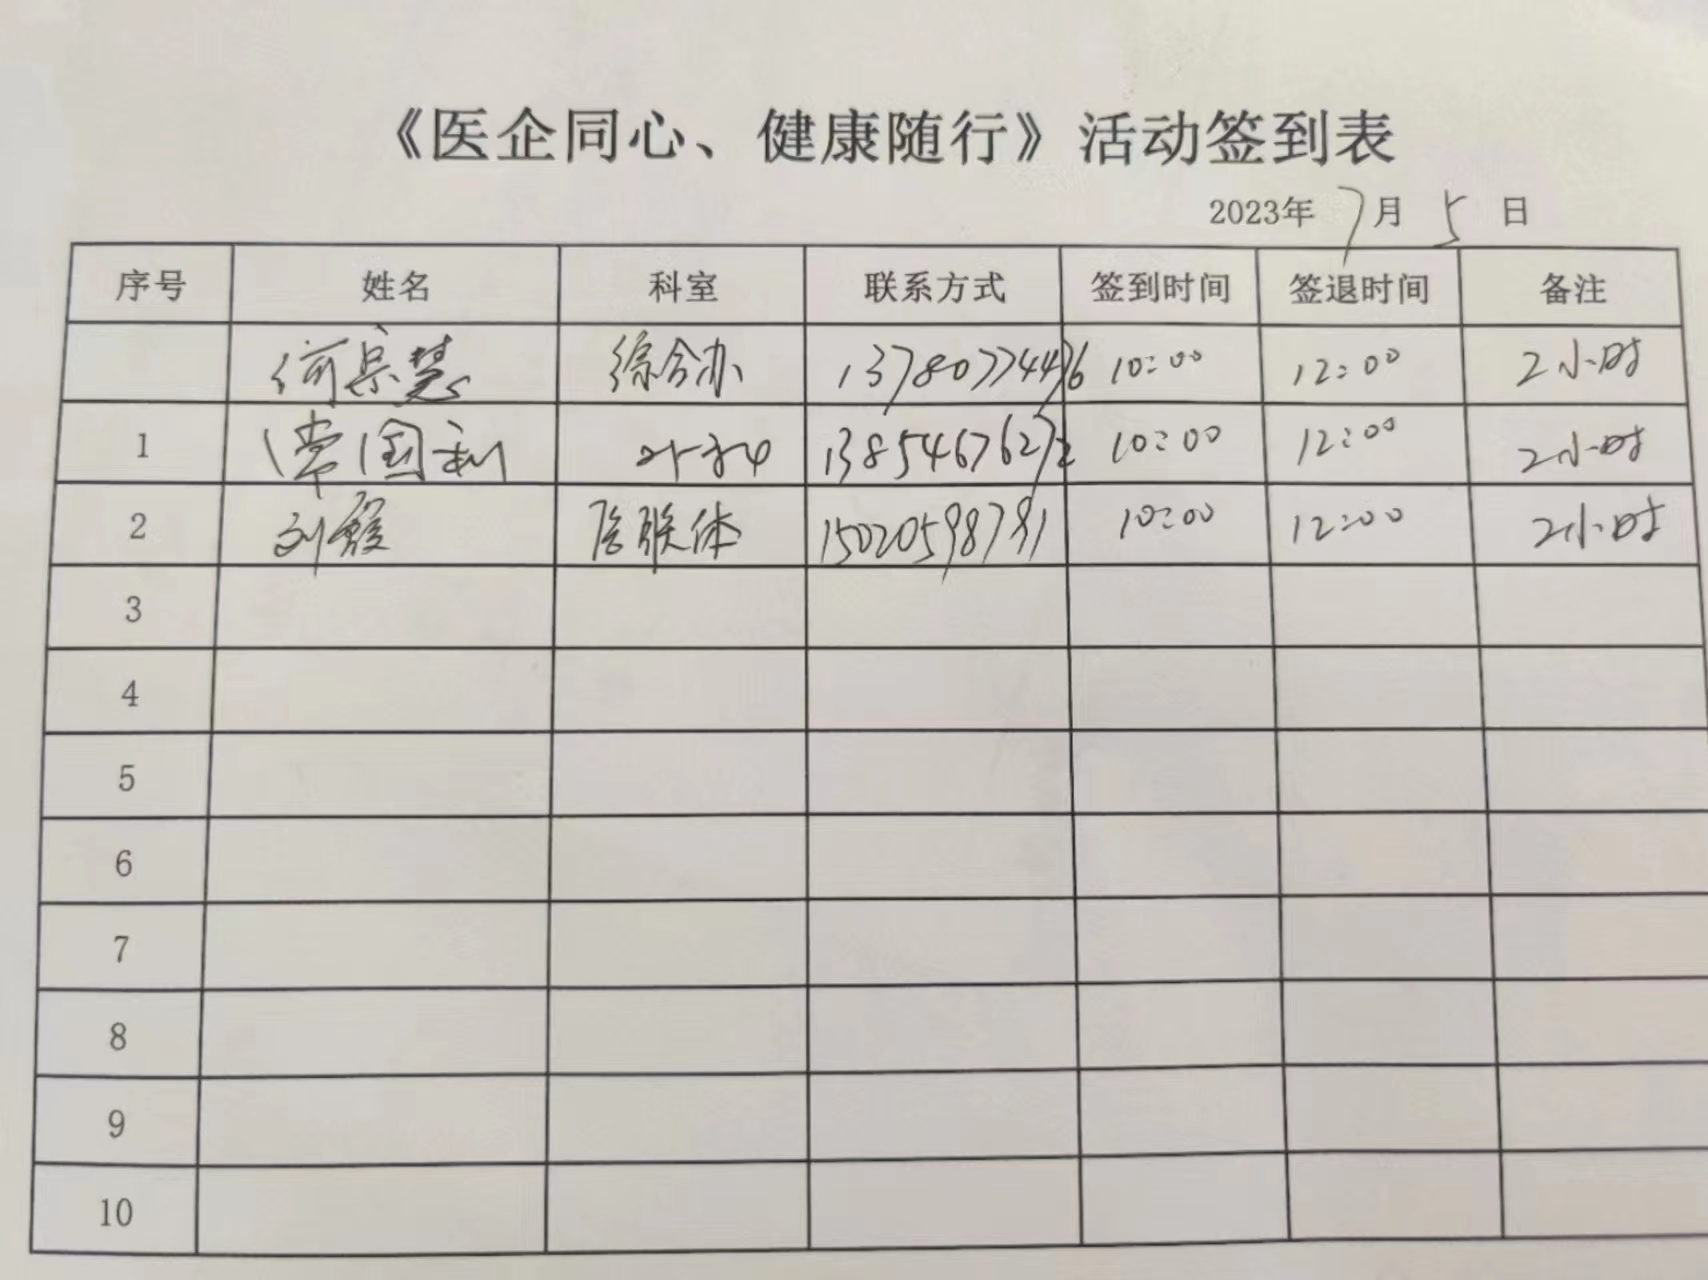 《医企同心、健康随行》活动签到表
2023年 7 月 5 日
序号 姓名 科室 联系方式 签到时间 签退时间 备注
综合办 13780774476 10:00 12:00 2小时
1 常国利 外科 10:00 12:00 2小时
2 刘霞 医联体 10:00 12:00 2小时
3
4
5
6
7
8
9
10